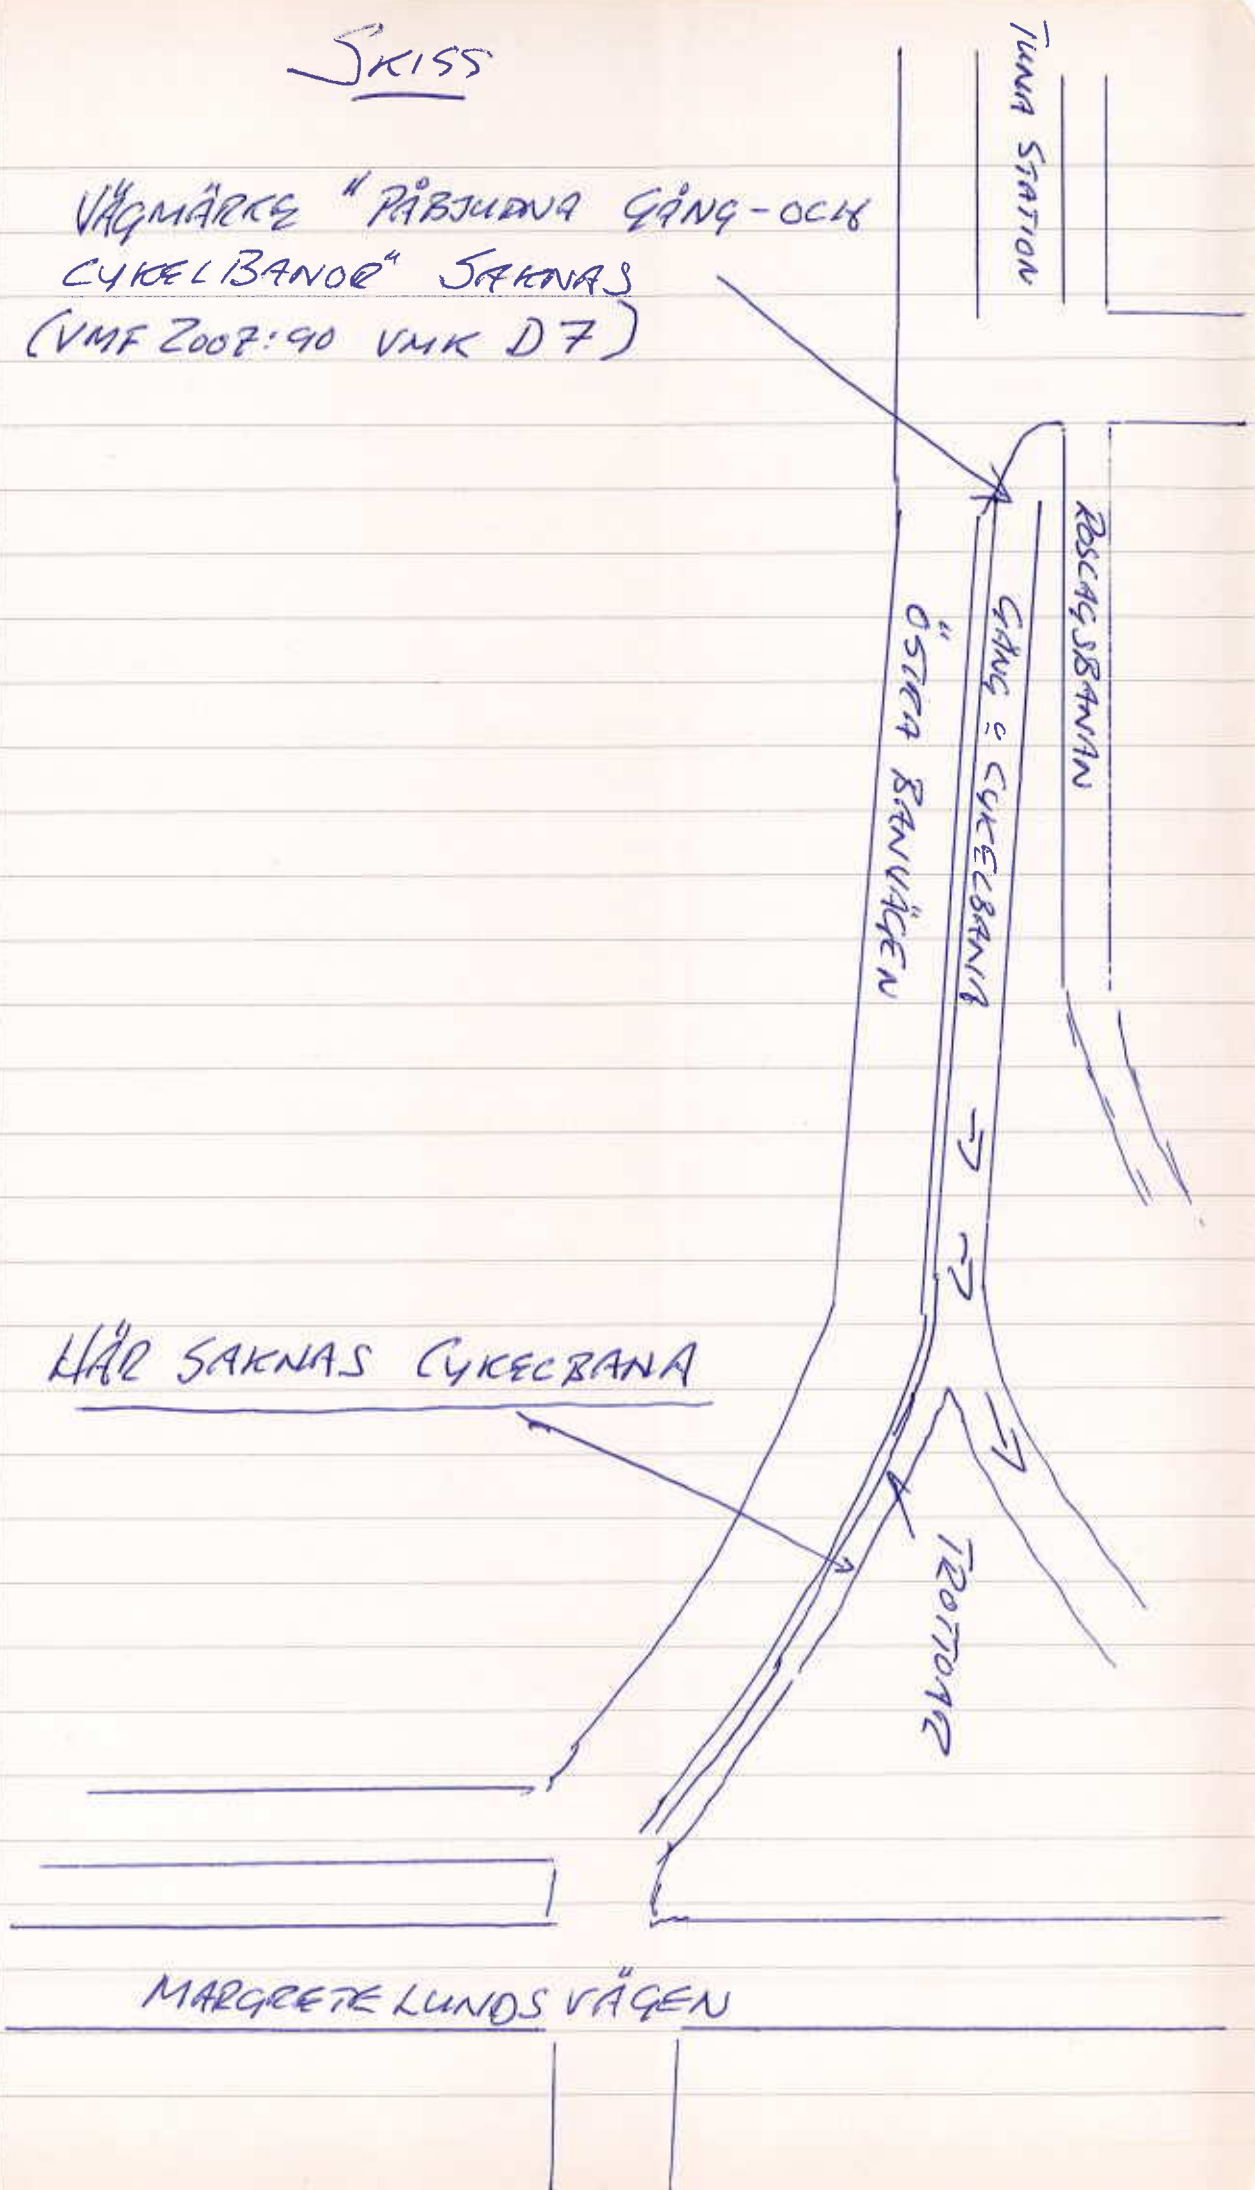 SKISS
TUNA STATION
VÄGMÄRKE "PÅBJUDNA GÅNG-OCH
CYKELBANOR" SAKNAS
(VMF 2007:90 VMK D7)
ROSLAGSBANAN
GÅNG o CYKELBANA
ÖSTRA BANVÄGEN
HÄR SAKNAS CYKELBANA
TROTTOAR
MARGRETELUNDSVÄGEN